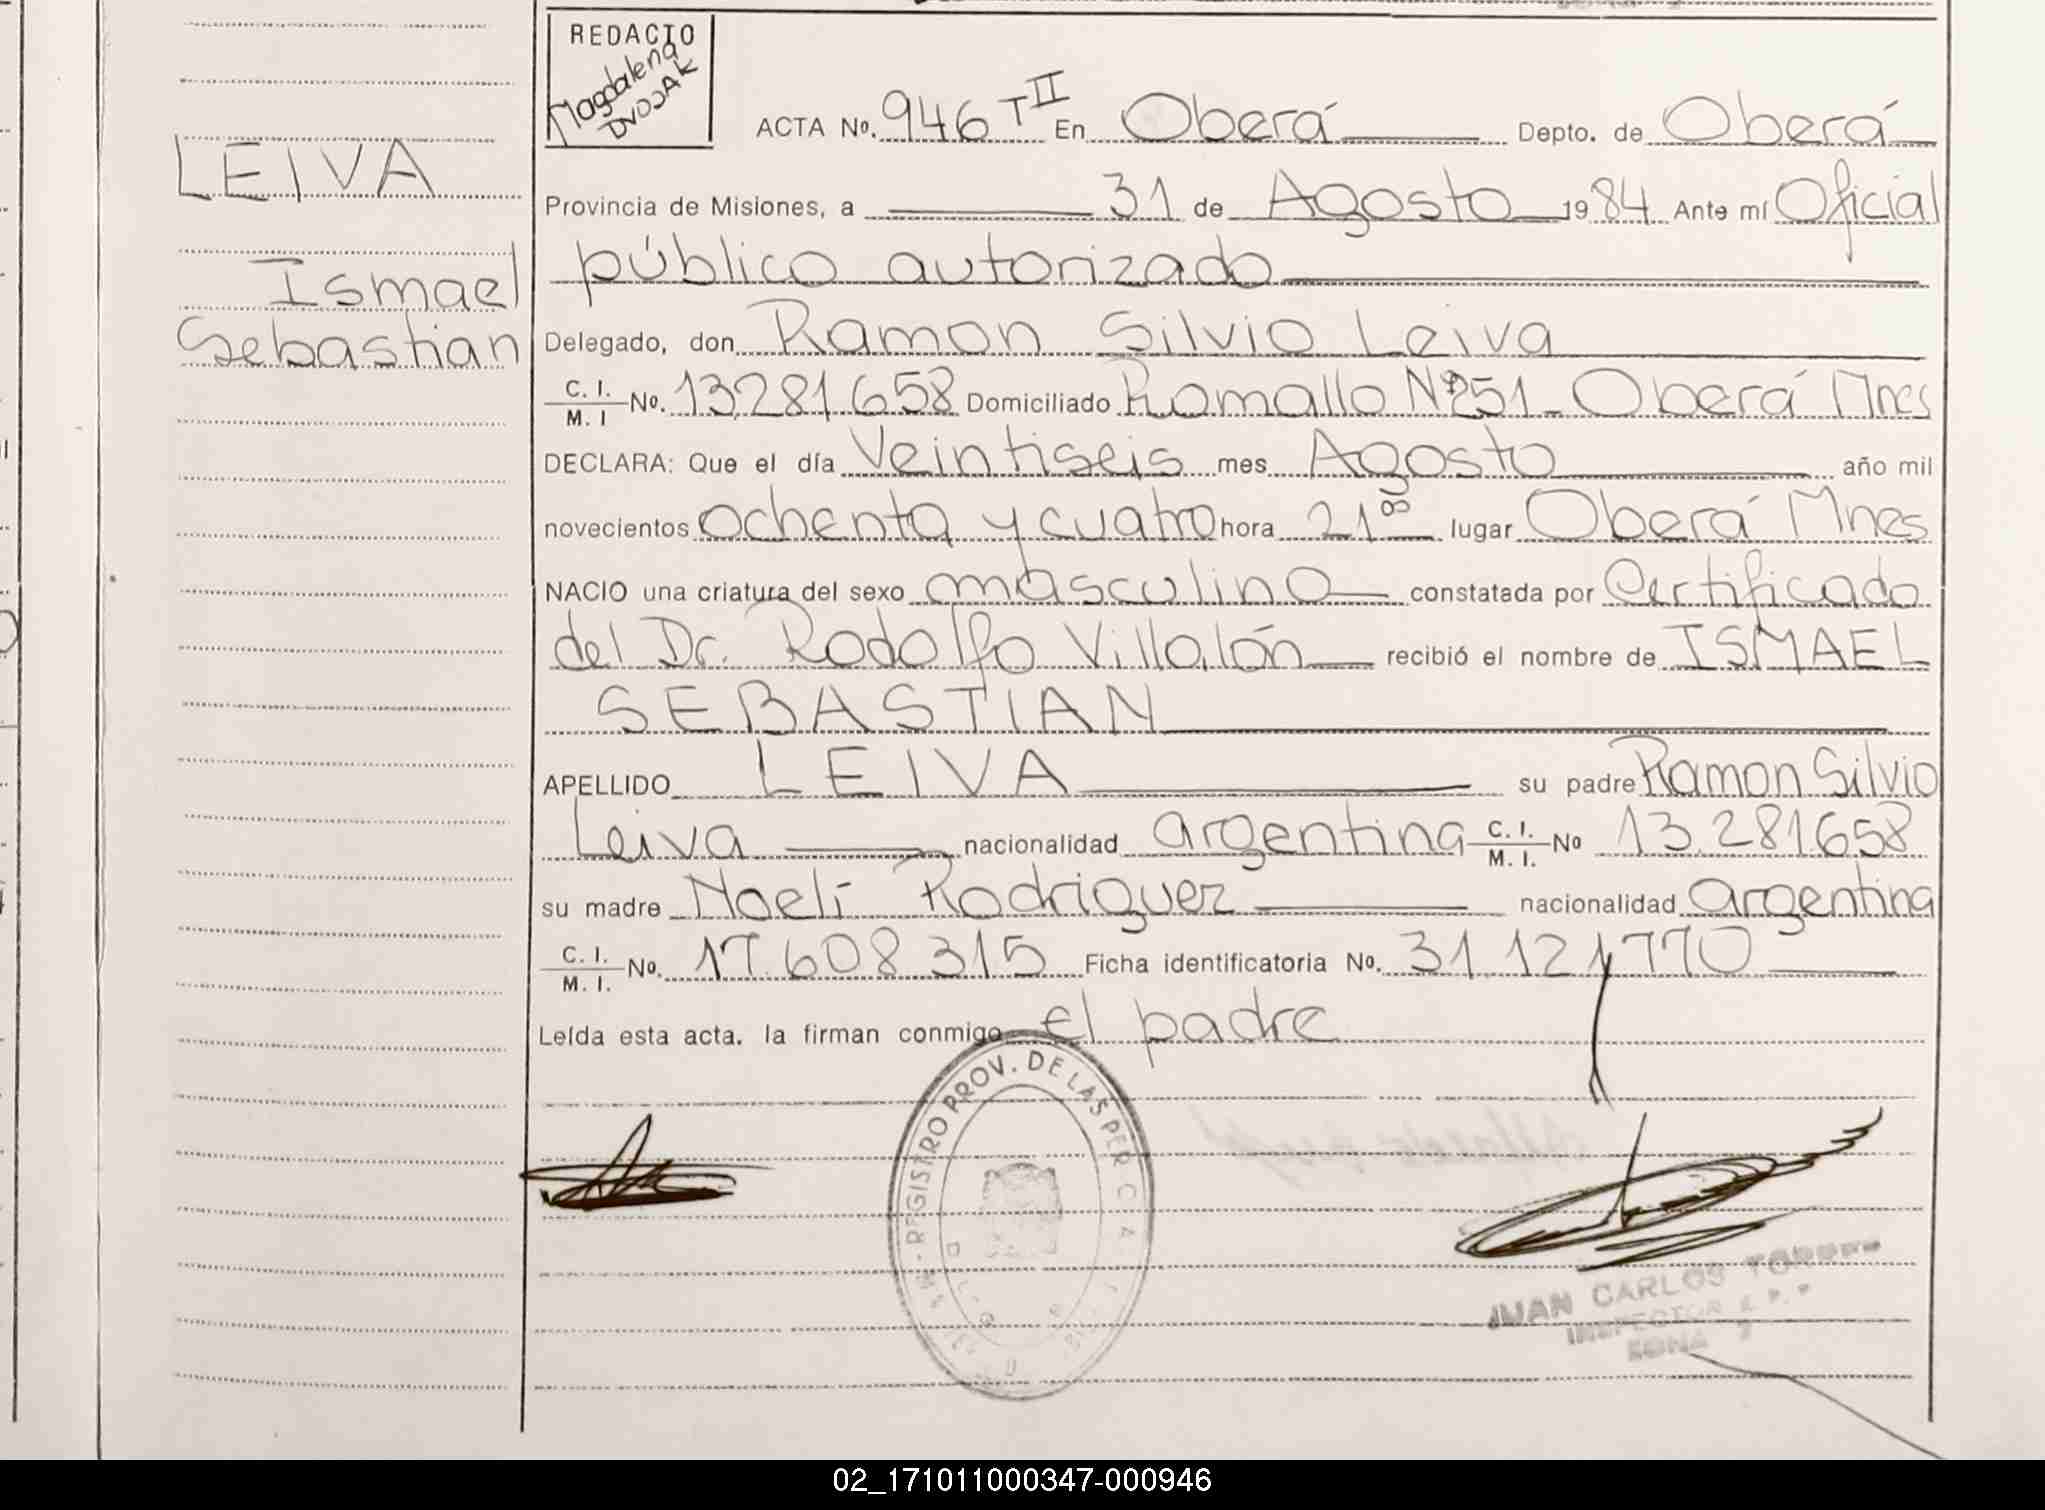 REDACTO
Magdalena
DVOJAK
ACTA No. 946 T II En Oberá Depto. de Oberá
LEIVA
Provincia de Misiones, a 31 de Agosto 1984 Ante mí Oficial
público autorizado
Ismael
Sebastian
Delegado, don Ramon Silvio Leiva
C. I. / M. I No. 13.281.658 Domiciliado Ramallo Nº 251 - Oberá Mnes
DECLARA: Que el día Veintiseis mes Agosto año mil
novecientos ochenta y cuatro hora 21 00 lugar Oberá Mnes
NACIO una criatura del sexo masculino constatada por Certificado
del Dr. Rodolfo Villalón recibió el nombre de ISMAEL
SEBASTIAN
APELLIDO LEIVA su padre Ramon Silvio
Leiva nacionalidad argentina C. I. / M. I. No 13.281658
su madre Noelí Rodriguez nacionalidad argentina
C. I. / M. I. No. 17.608.315 Ficha identificatoria No. 31.121770
Leída esta acta. la firman conmigo el padre
REGISTRO PROV. DE LAS PER
JUAN CARLOS TORRES
INSPECTOR
ZONA
02_171011000347-000946